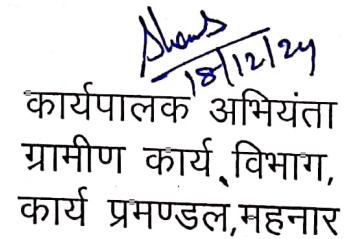 18/12/24
कार्यपालक अभियंता
ग्रामीण कार्य विभाग,
कार्य प्रमण्डल,महनार